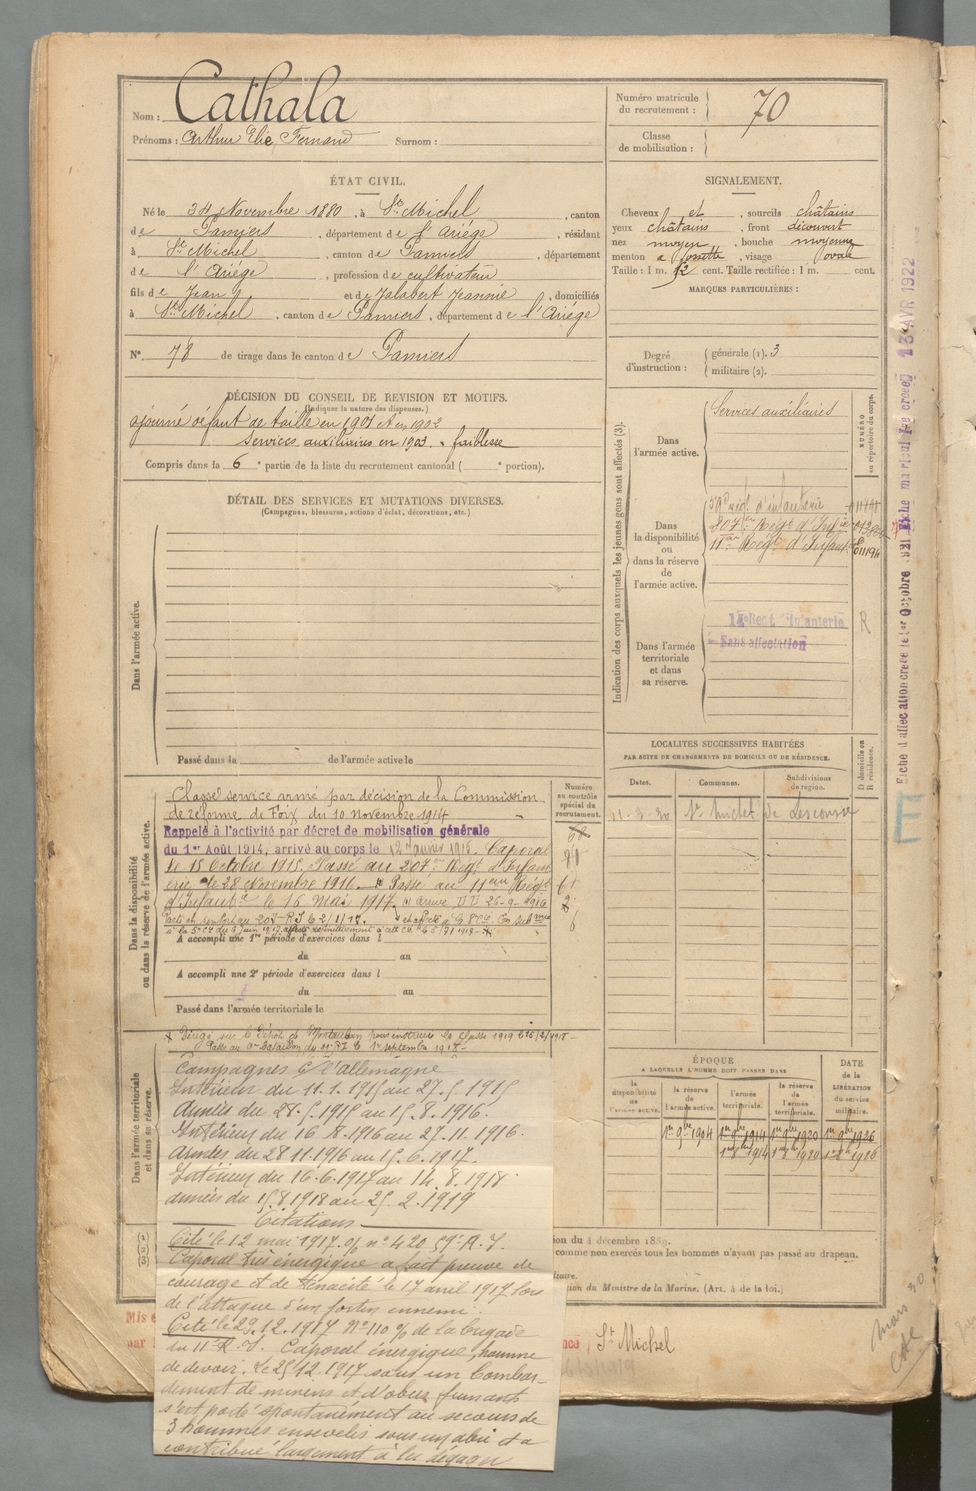 Nom : Cathala
Prénoms : Arthur Elie Fernand Surnom :
Numéro matricule
du recrutement : 70
Classe
de mobilisation :
ÉTAT CIVIL.
Né le Novembre 1880, à St Michel, canton
de Pamiers, département de l'Ariége, résidant
à St Michel, canton de Pamiers, département
de l'Ariége, profession de cultivateur
fils de Jean et de Jalabert Jeanne, domiciliés
à St Michel, canton de Pamiers, département de l'Ariége
N° 78 de tirage dans le canton de Pamiers
SIGNALEMENT.
Cheveux et, sourcils châtains
yeux châtains, front découvert
nez moyen, bouche moyenne
menton à fossette, visage ovale
Taille : 1 m. 52 cent. Taille rectifiée : 1 m. cent.
MARQUES PARTICULIÈRES :
Degré
d'instruction :
générale (1). 3
militaire (2).
DÉCISION DU CONSEIL DE REVISION ET MOTIFS.
(Indiquer la nature des dispenses.)
ajourné défaut de taille en 1901 et en 1902
services auxiliaires en 1903. faiblesse
Compris dans la 6e partie de la liste du recrutement cantonal ( e portion).
DÉTAIL DES SERVICES ET MUTATIONS DIVERSES.
(Campagnes, blessures, actions d'éclat, décorations, etc.)
Dans l'armée active.
Passé dans la de l'armée active le
Indication des corps auxquels les jeunes gens sont affectés (3).
NUMÉRO
au répertoire du corps.
Dans
l'armée active.
Services auxiliaires
Dans
la disponibilité
ou
dans la réserve
de
l'armée active.
59e régt d'infanterie
207ème Régt d'Infie
11ème Régt d'Infant. 011194
Dans l'armée
territoriale
et dans
sa réserve.
Infanterie R
Sans affectation
LOCALITÉS SUCCESSIVES HABITÉES
PAR SUITE DE CHANGEMENTS DE DOMICILE OU DE RÉSIDENCE.
Dates. Communes. Subdivisions
de région.
D domicile ou
R résidence.
St Michel de Lescousse
Fiche matricule créée 13 AVR 1922
Fiche d'affectation créée le 1er Octobre 1921
Dans la disponibilité
ou dans la réserve de l'armée active.
Numéro
au contrôle
spécial du
recrutement.
Classé service armé par décision de la Commission
de réforme de Foix du 10 novembre 1914
Rappelé à l'activité par décret de mobilisation générale
du 1er Août 1914, arrivé au corps le 12 Janvier 1915. Caporal
le 15 Octobre 1915. Passé au 207e Régt d'Infant
erie le 28 Novembre 1916. Passé au 11ème Régt
d'Infantie le 16 Mai 1917.
A accompli une 1re période d'exercices dans l
du au
A accompli une 2e période d'exercices dans l
du au
Passé dans l'armée territoriale le
Dirigé sur le Dépôt de Montauban pour instruire la classe 1919
Passé au Bataillon du 11e RI le 1er septembre 1918
Dans l'armée territoriale
et dans sa réserve.
Campagnes c/ l'allemagne
Intérieur du 11.1.1915 au 27.5.1915
Armées du 28.5.1915 au 15.8.1916.
Intérieur du 16.8.1916 au 27.11.1916.
Armées du 28.11.1916 au 15.6.1917.
Intérieur du 16.6.1917 au 14.8.1918
armées du 15.8.1918 au 25.2.1919
Citations
Cité le 12 mai 1917. o/ n° 420 59e R.I.
Caporal très énergique a fait preuve de
courage et de ténacité le 17 avril 1917 lors
de l'attaque d'un fortin ennemi.
Cité le 29.12.1917 N° 110 o/o de la brigade
du 11e R.I. Caporal énergique, homme
de devoir. Le 25.12.1917 sous un bombar-
dement de minens et d'obus fumants
s'est porté spontanément au secours de
3 hommes ensevelis sous un abri et a
contribué largement à les dégager
ÉPOQUE
A LAQUELLE L'HOMME DOIT PASSER DANS
DATE
de la
LIBÉRATION
du service
militaire.
la
disponibilité
de
l'armée active. la réserve
de
l'armée active. l'armée
territoriale. la réserve
de
l'armée
territoriale.
1er 9bre 1904 1er 9bre 1914 1er 9bre 1920 1er 9bre 1926
1er 8bre 1914 1er 8bre 1920 1er 8bre 1926
comme non exercés tous les hommes n'ayant pas passé au drapeau.
du Ministre de la Marine. (Art. 4 de la loi.)
Mis e
par
St Michel
mars 20